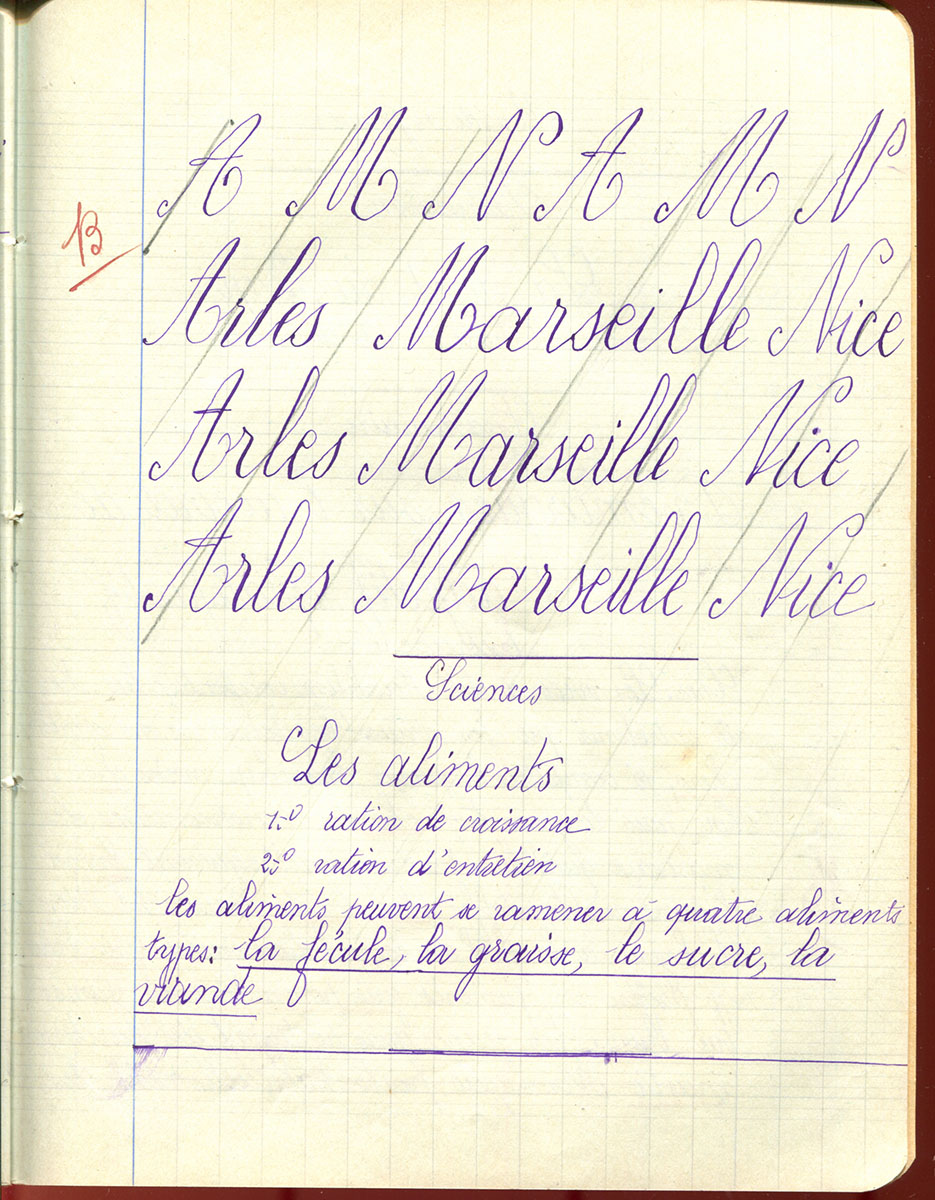 A M N A M N
13
Arles Marseille Nice
Arles Marseille Nice
Arles Marseille Nice
Sciences
Les aliments
1-º ration de croissance
2-º ration d'entretien
les aliments peuvent se ramener à quatre aliments
types: la fécule, la graisse, le sucre, la
viande